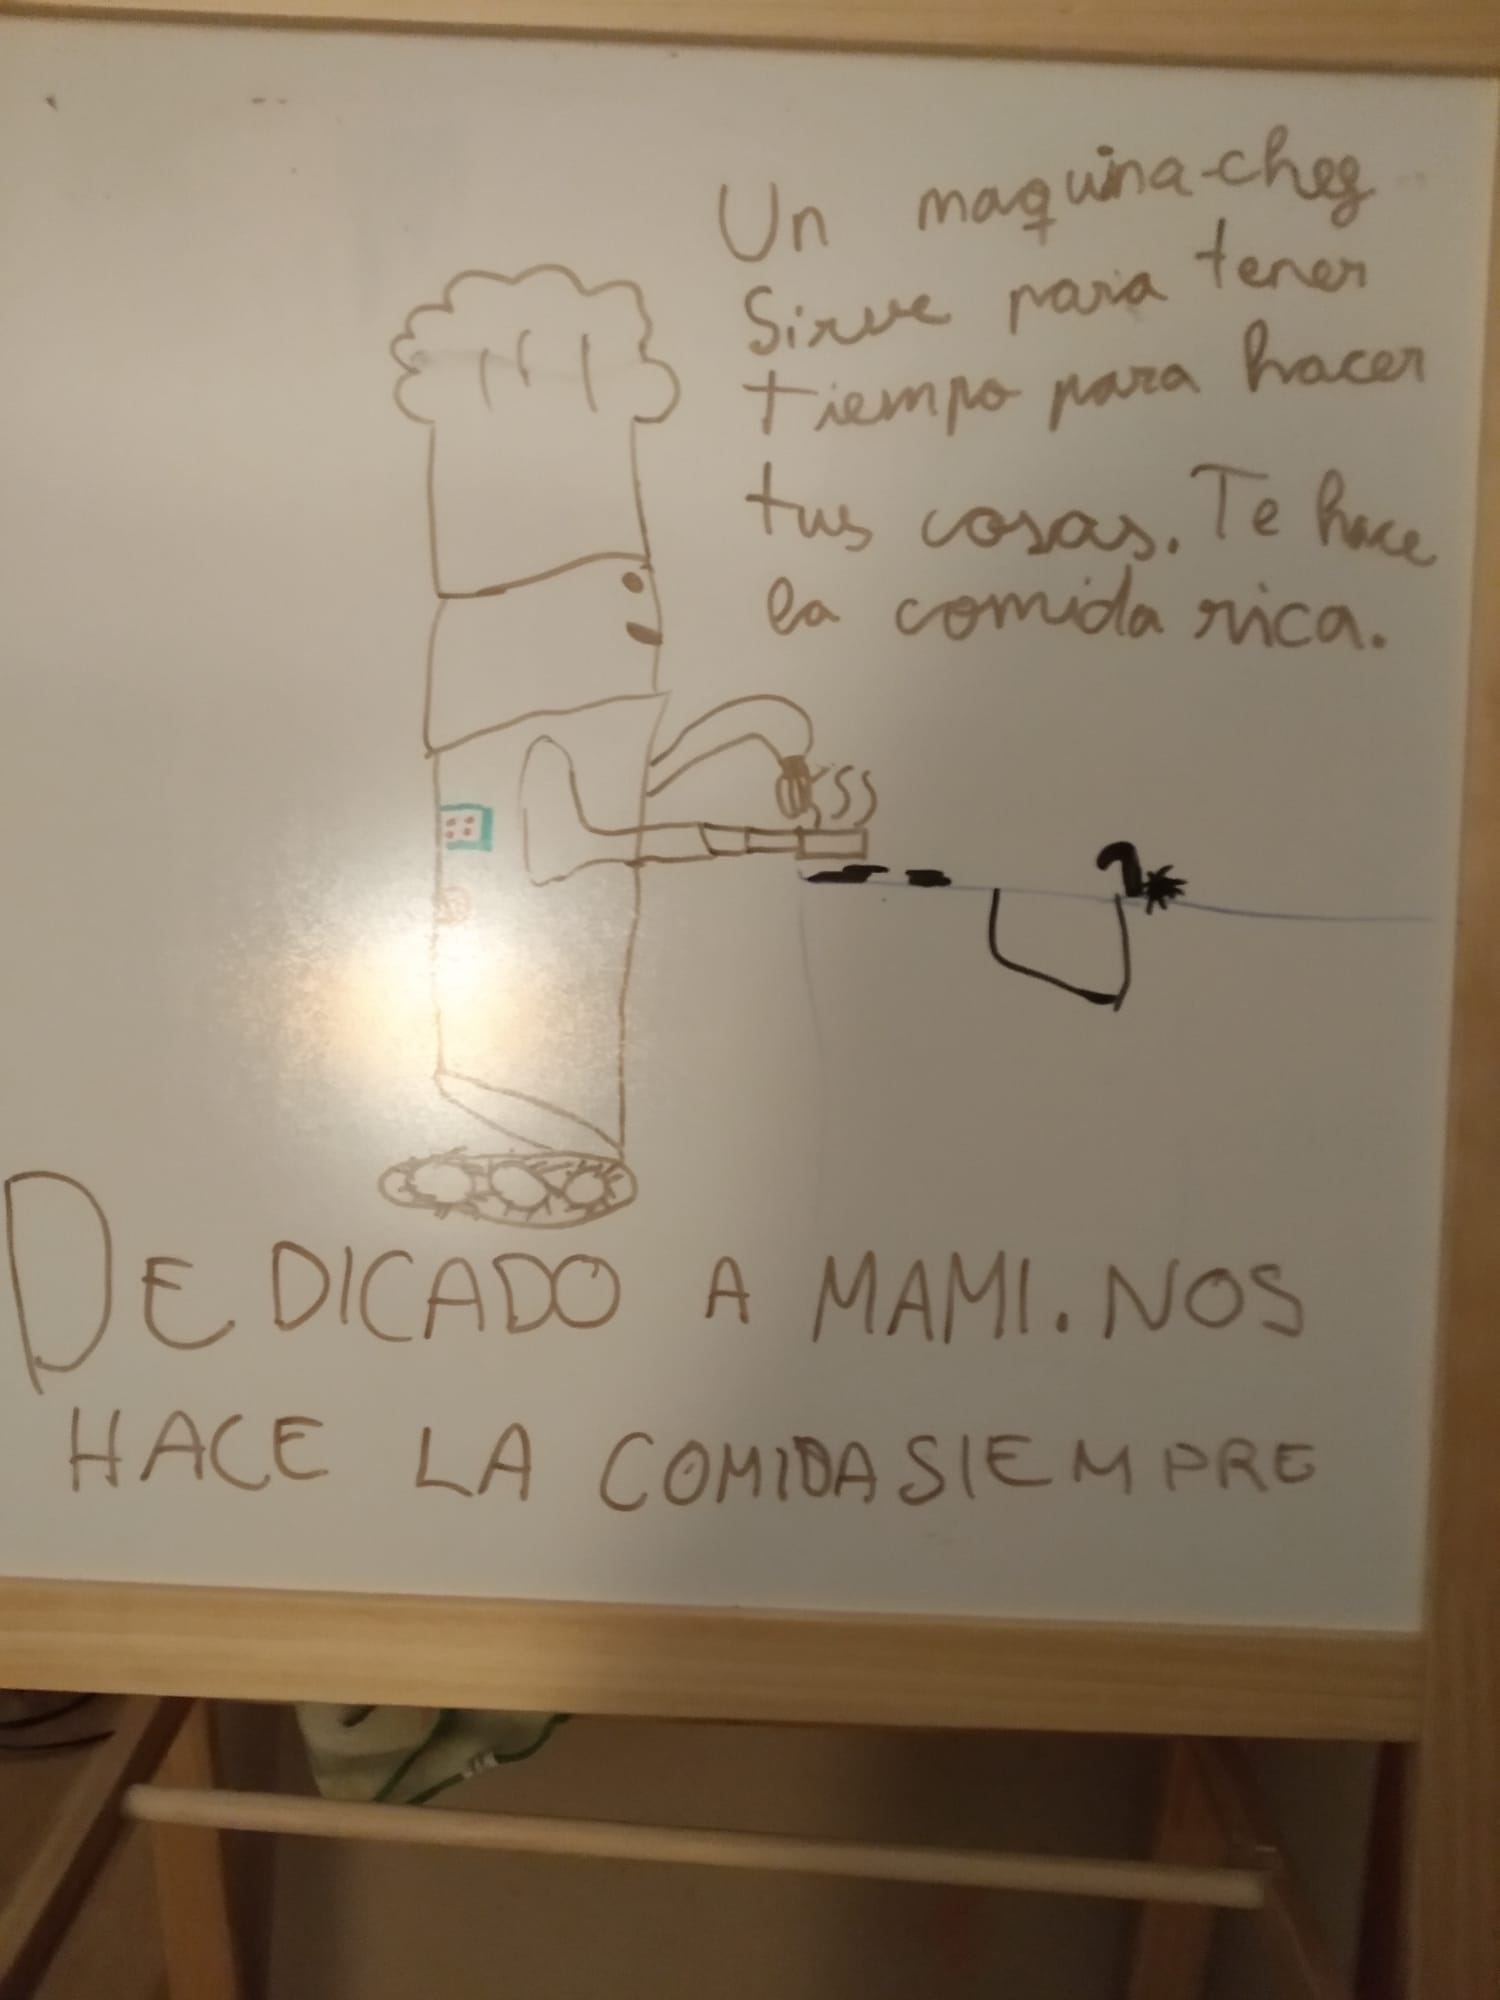 Un maquina-cheg
Sirve para tener
tiempo para hacer
tus cosas. Te hace
la comida rica.
DEDICADO A MAMI. NOS
HACE LA COMIDA SIEMPRE